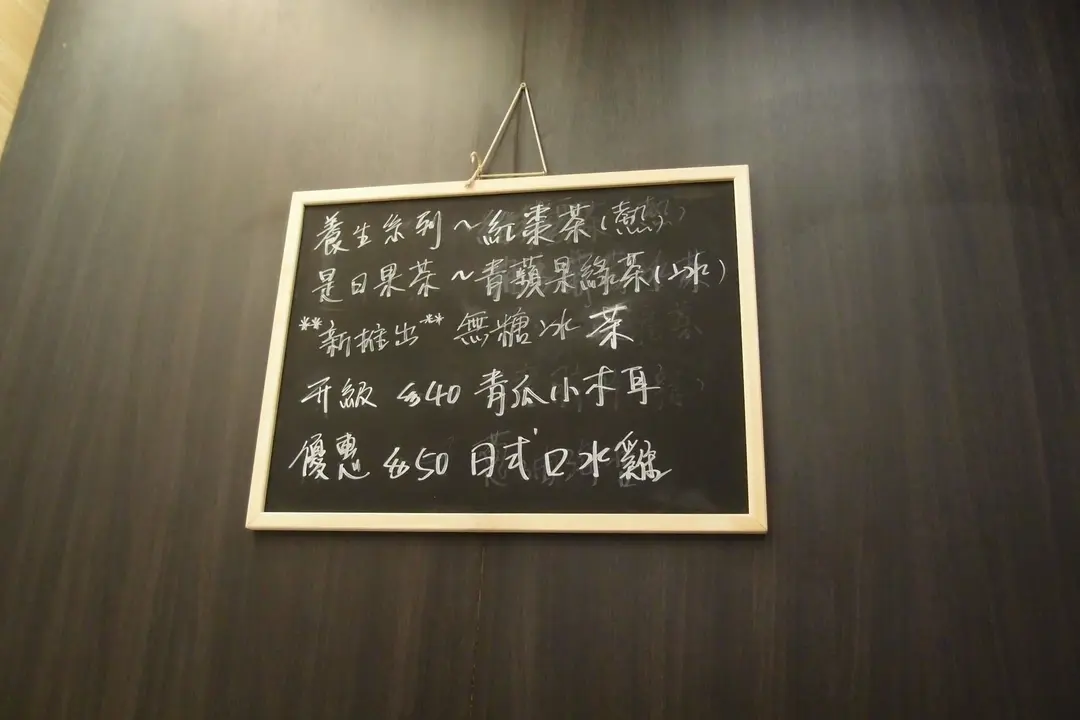 養生系列~紅棗茶(熱)
是日果茶~青蘋果綠茶(冰)
**新推出** 無糖冰茶
升級 $40 青瓜小木耳
優惠 $50 日式口水雞